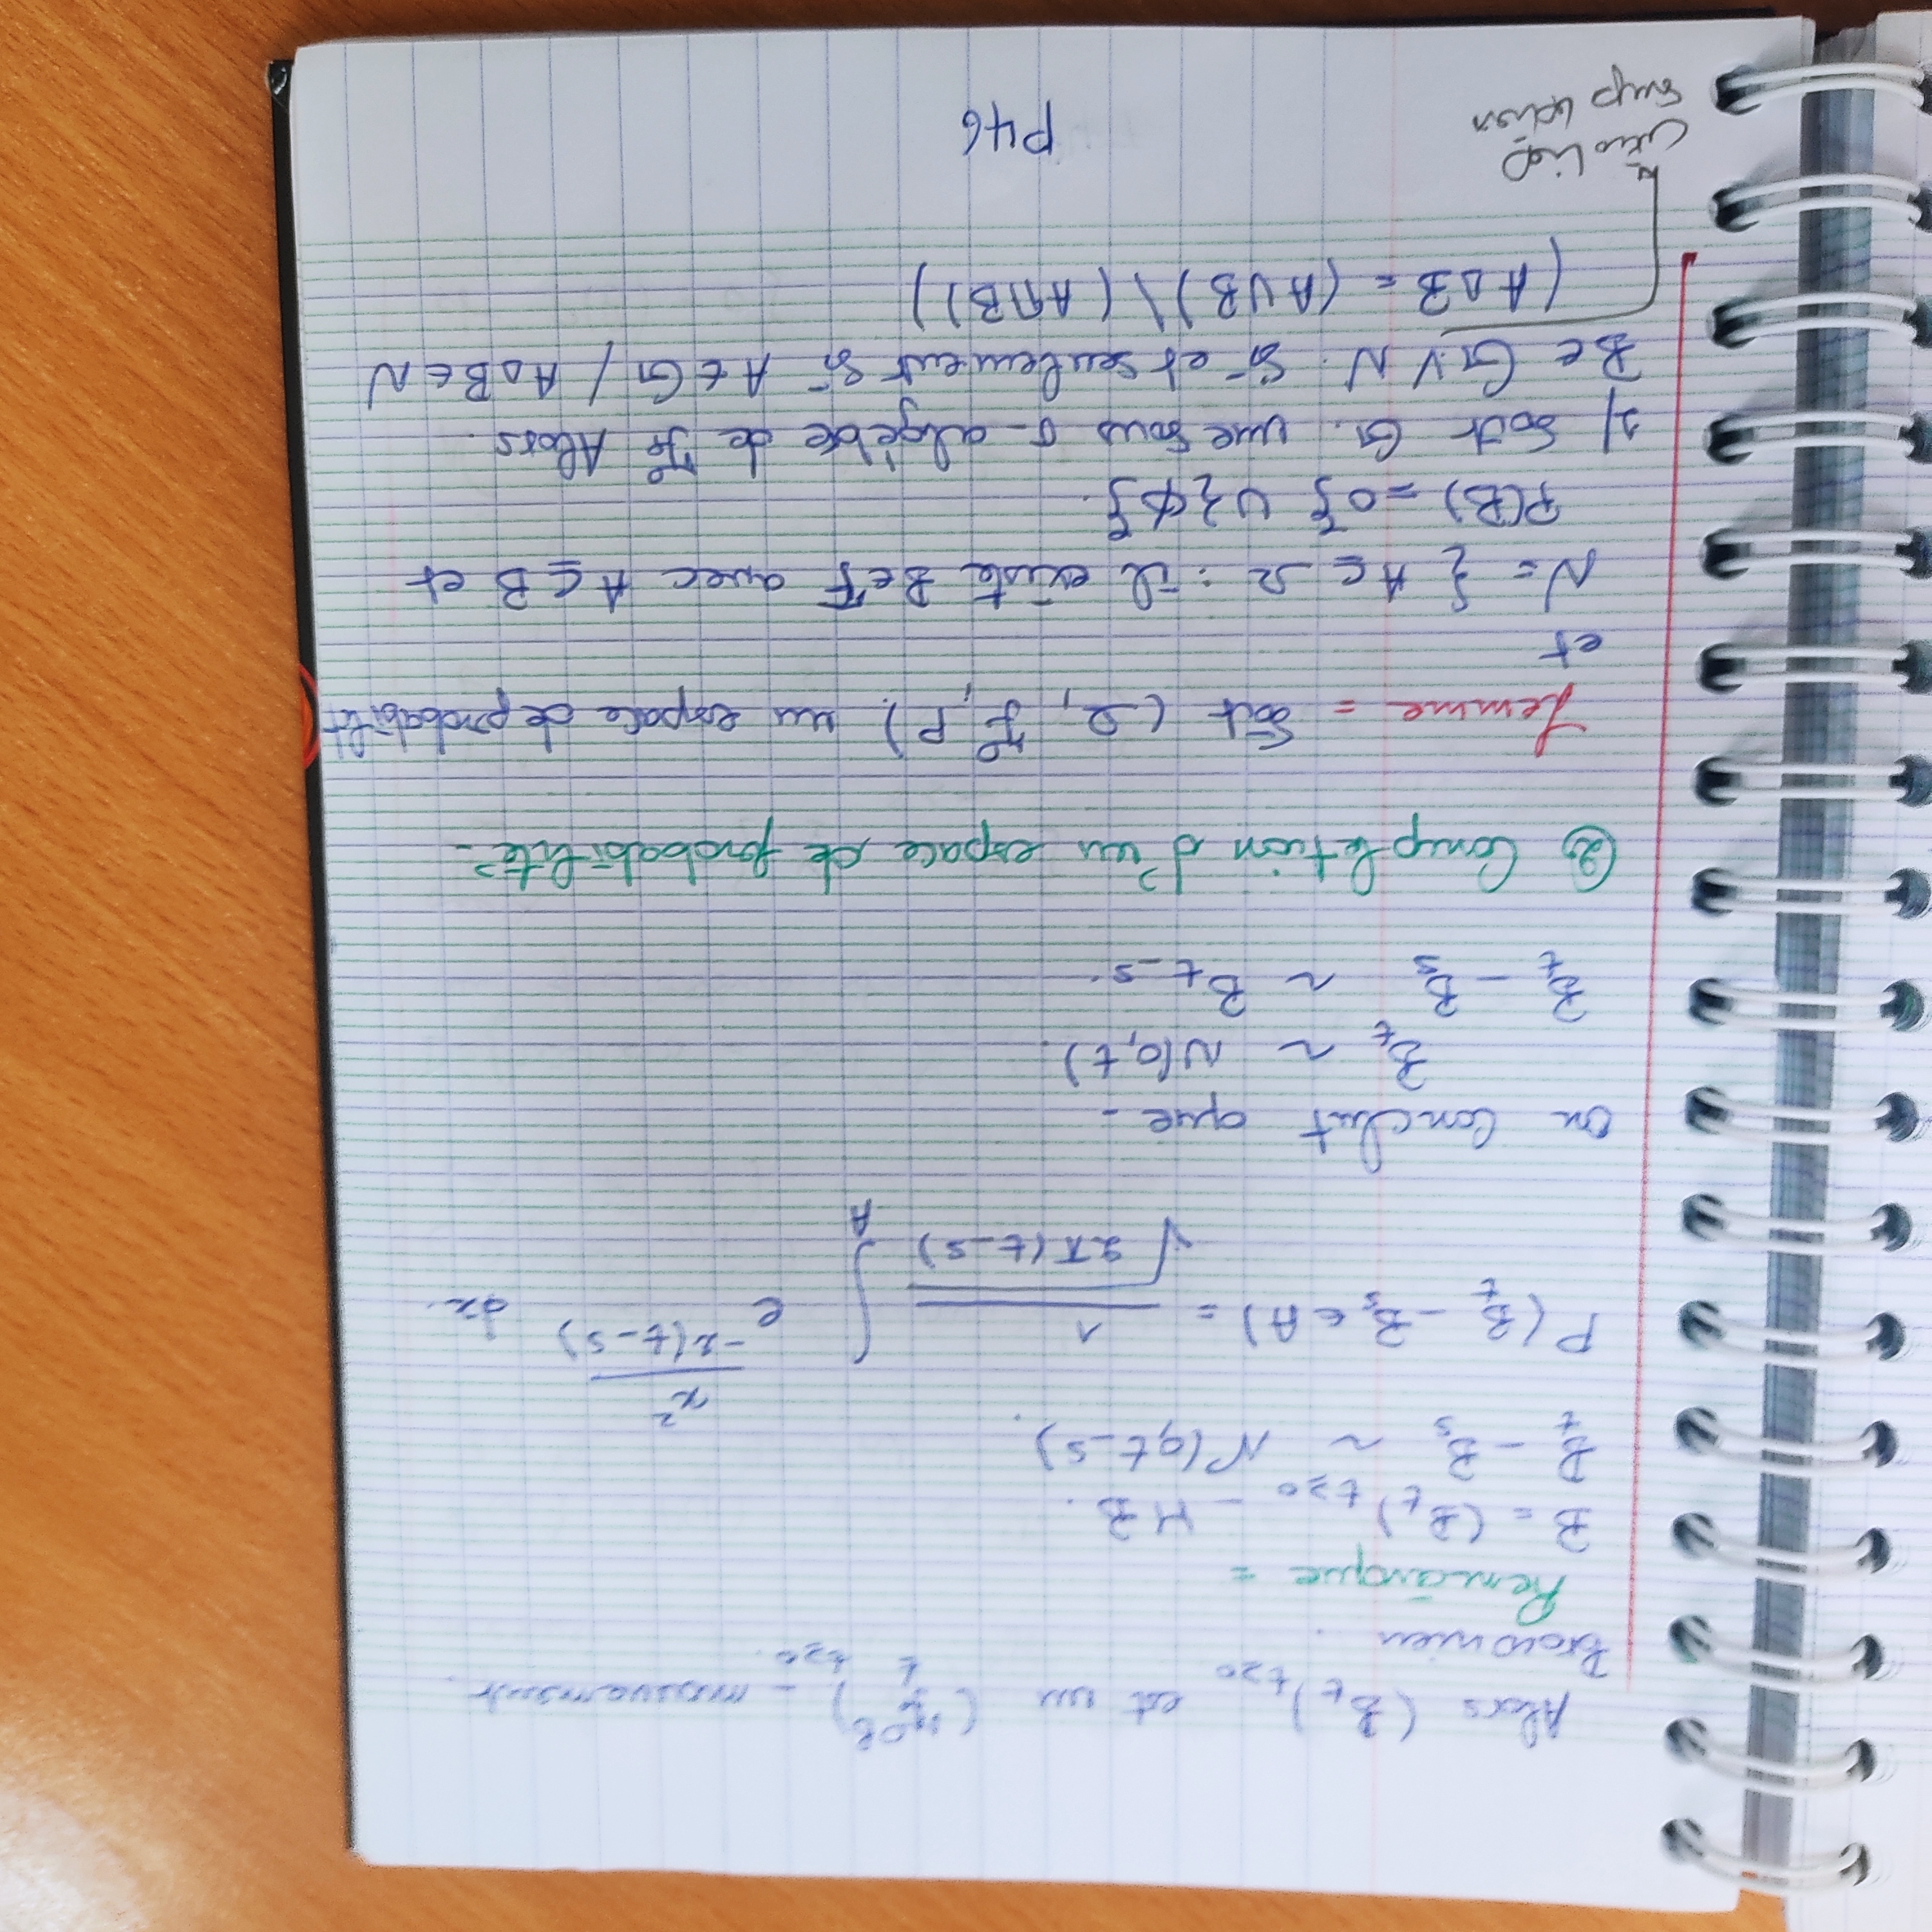 Alors (B_t)_{t≥0} est un (F_t^{0B})_{t≥0} - mouvement
Brownien.
Remarque =
B = (B_t)_{t≥0} - MB.
B_t - B_s ~ N(0, t-s).
P(B_t - B_s ∈ A) = 1/√(2π(t-s)) ∫_A e^{x²/-2(t-s)} dx.
on Conclut que -
B_t ~ N(0,t).
B_t - B_s ~ B_{t-s}.
② Completion d'un espace de probabilité -
Lemme = Soit (Ω, F, P) un espace de probabilit
et
N = { A ⊆ Ω : il existe B ∈ F avec A ⊆ B et
P(B) = 0} ∪ {∅}.
1/ Soit G. une sous σ-algèbre de F. Alors.
B ∈ G ∨ N. Si et seulement si A ∈ G / A Δ B ∈ N
(A Δ B = (A ∪ B) \ (A ∩ B))
هنا معناتها
P46